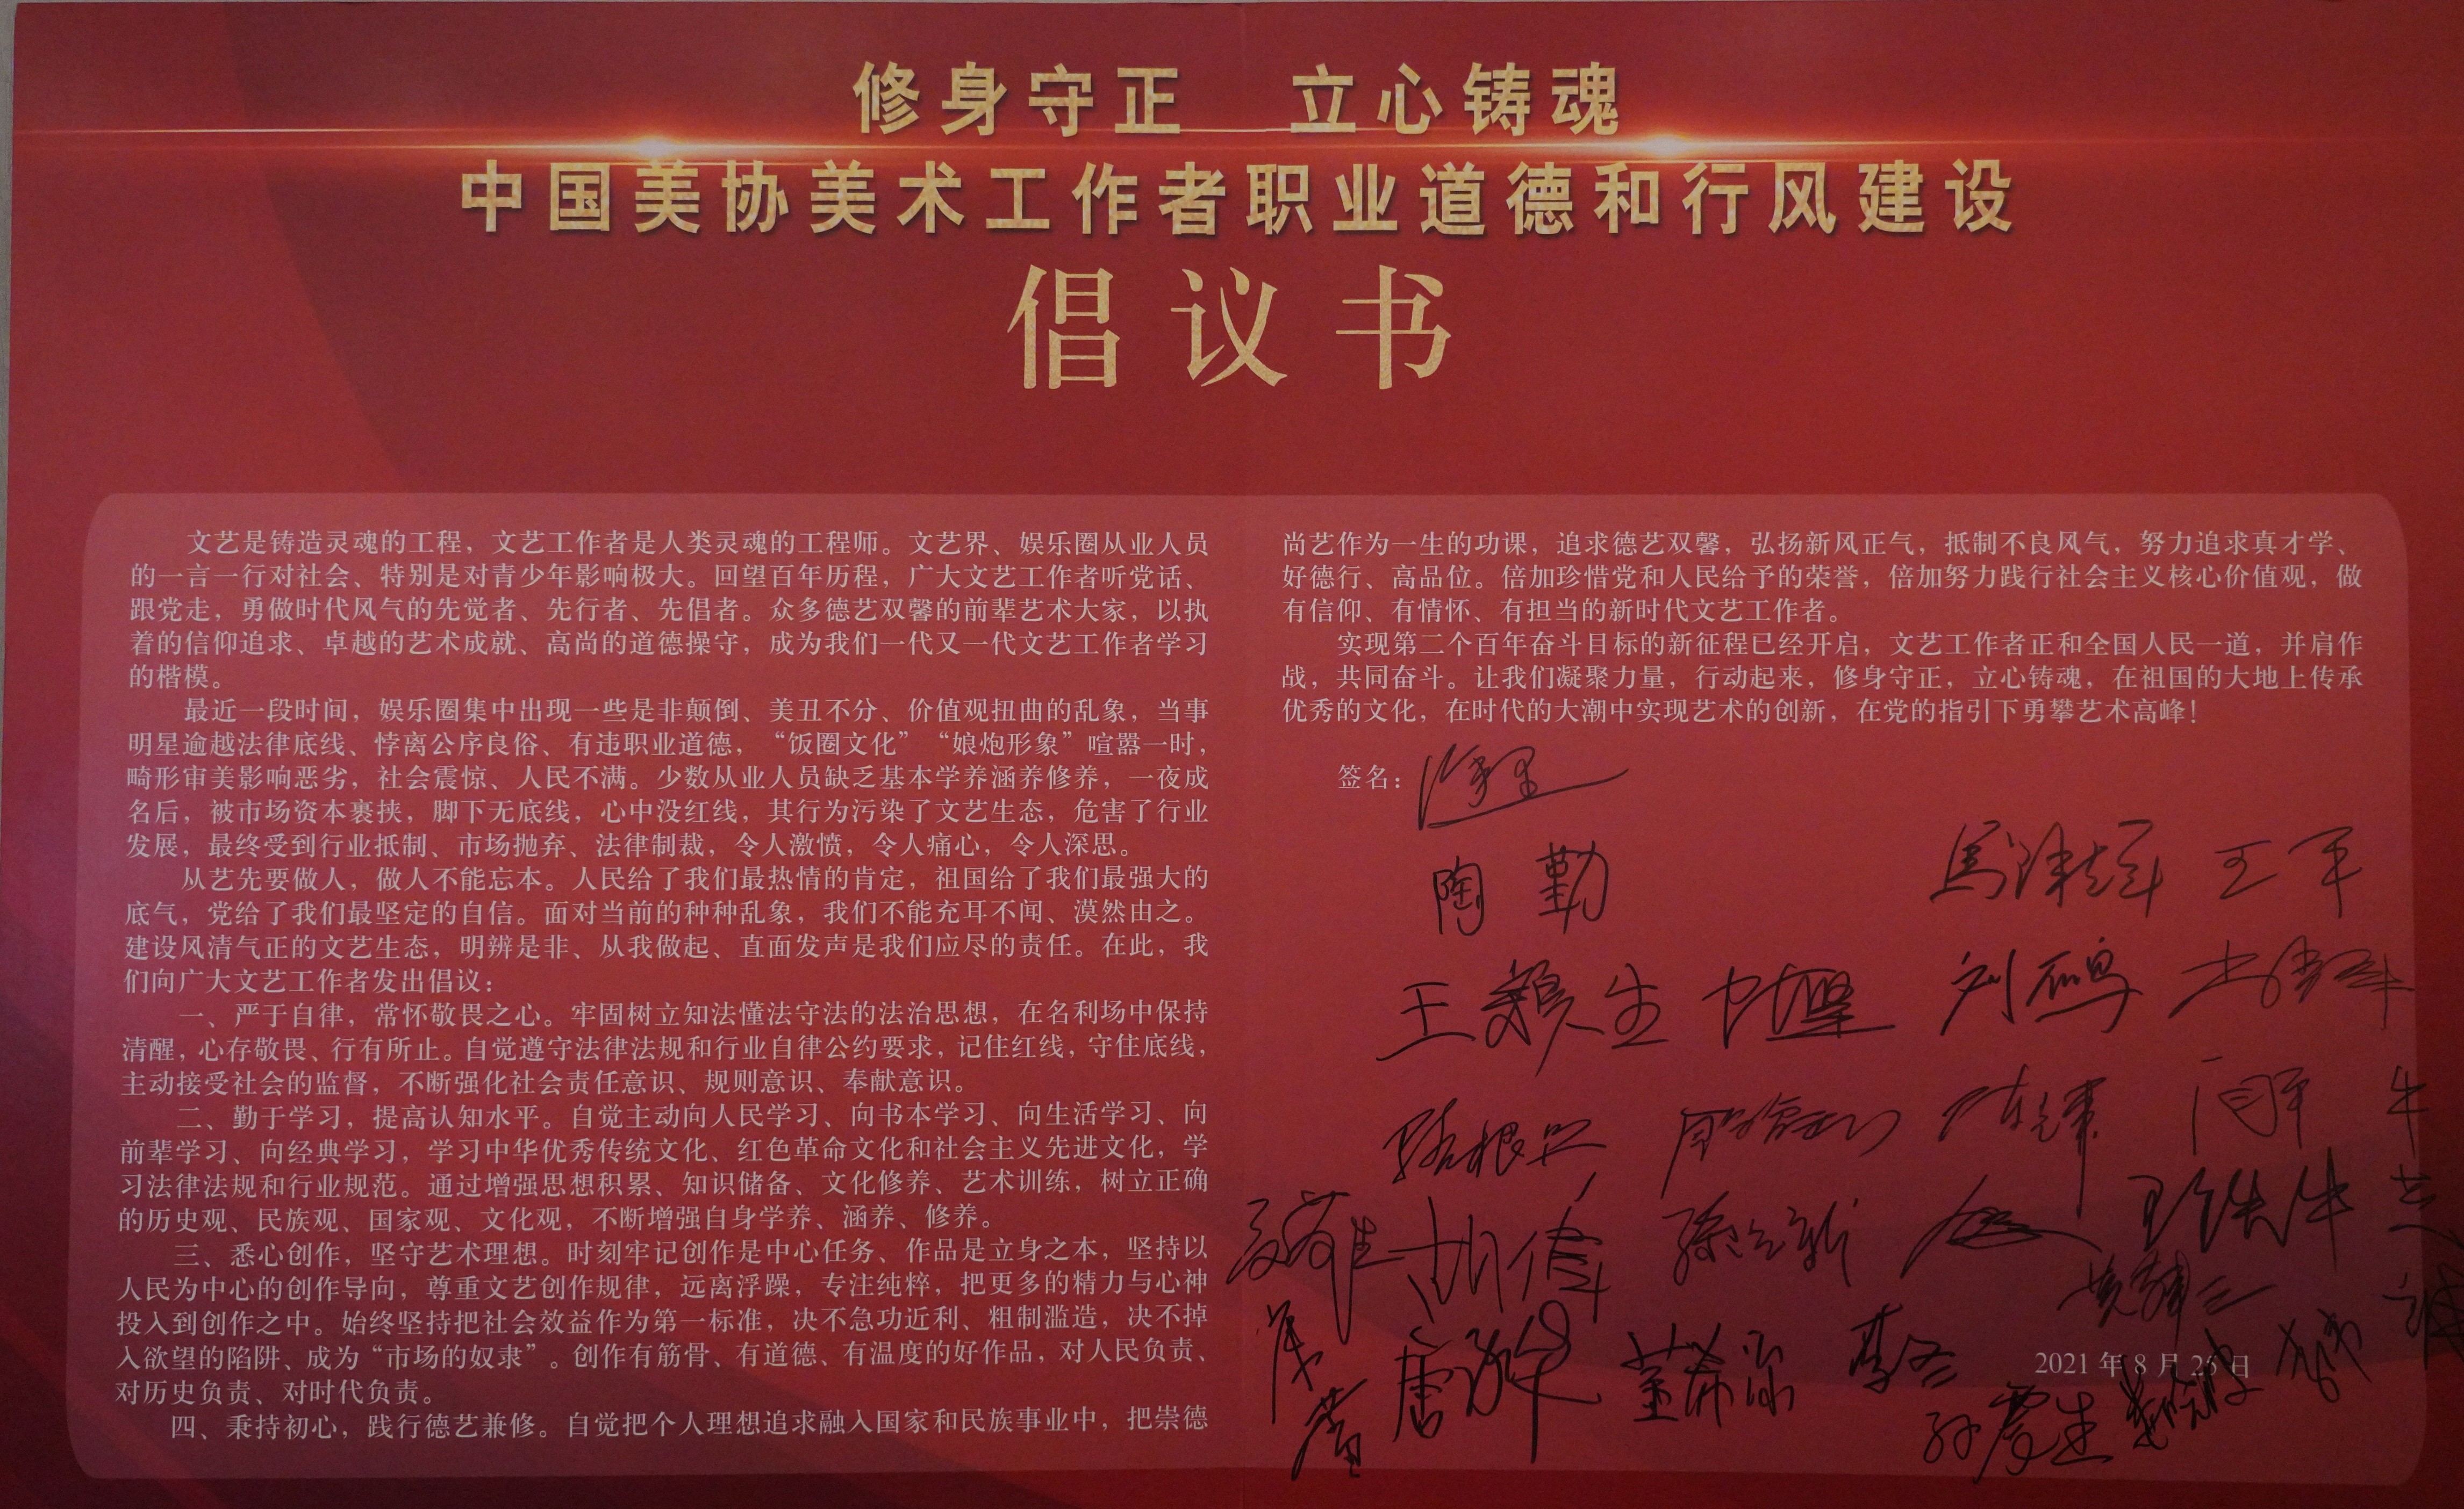 修身守正　立心铸魂
中国美协美术工作者职业道德和行风建设
倡议书
文艺是铸造灵魂的工程，文艺工作者是人类灵魂的工程师。文艺界、娱乐圈从业人员
的一言一行对社会、特别是对青少年影响极大。回望百年历程，广大文艺工作者听党话、
跟党走，勇做时代风气的先觉者、先行者、先倡者。众多德艺双馨的前辈艺术大家，以执
着的信仰追求、卓越的艺术成就、高尚的道德操守，成为我们一代又一代文艺工作者学习
的楷模。
最近一段时间，娱乐圈集中出现一些是非颠倒、美丑不分、价值观扭曲的乱象，当事
明星逾越法律底线、悖离公序良俗、有违职业道德，“饭圈文化”“娘炮形象”喧嚣一时，
畸形审美影响恶劣，社会震惊、人民不满。少数从业人员缺乏基本学养涵养修养，一夜成
名后，被市场资本裹挟，脚下无底线，心中没红线，其行为污染了文艺生态，危害了行业
发展，最终受到行业抵制、市场抛弃、法律制裁，令人激愤，令人痛心，令人深思。
从艺先要做人，做人不能忘本。人民给了我们最热情的肯定，祖国给了我们最强大的
底气，党给了我们最坚定的自信。面对当前的种种乱象，我们不能充耳不闻、漠然由之。
建设风清气正的文艺生态，明辨是非、从我做起、直面发声是我们应尽的责任。在此，我
们向广大文艺工作者发出倡议：
一、严于自律，常怀敬畏之心。牢固树立知法懂法守法的法治思想，在名利场中保持
清醒，心存敬畏、行有所止。自觉遵守法律法规和行业自律公约要求，记住红线，守住底线，
主动接受社会的监督，不断强化社会责任意识、规则意识、奉献意识。
二、勤于学习，提高认知水平。自觉主动向人民学习、向书本学习、向生活学习、向
前辈学习、向经典学习，学习中华优秀传统文化、红色革命文化和社会主义先进文化，学
习法律法规和行业规范。通过增强思想积累、知识储备、文化修养、艺术训练，树立正确
的历史观、民族观、国家观、文化观，不断增强自身学养、涵养、修养。
三、悉心创作，坚守艺术理想。时刻牢记创作是中心任务、作品是立身之本，坚持以
人民为中心的创作导向，尊重文艺创作规律，远离浮躁，专注纯粹，把更多的精力与心神
投入到创作之中。始终坚持把社会效益作为第一标准，决不急功近利、粗制滥造，决不掉
入欲望的陷阱、成为“市场的奴隶”。创作有筋骨、有道德、有温度的好作品，对人民负责、
对历史负责、对时代负责。
四、秉持初心，践行德艺兼修。自觉把个人理想追求融入国家和民族事业中，把崇德
尚艺作为一生的功课，追求德艺双馨，弘扬新风正气，抵制不良风气，努力追求真才学、
好德行、高品位。倍加珍惜党和人民给予的荣誉，倍加努力践行社会主义核心价值观，做
有信仰、有情怀、有担当的新时代文艺工作者。
实现第二个百年奋斗目标的新征程已经开启，文艺工作者正和全国人民一道，并肩作
战，共同奋斗。让我们凝聚力量，行动起来，修身守正，立心铸魂，在祖国的大地上传承
优秀的文化，在时代的大潮中实现艺术的创新，在党的指引下勇攀艺术高峰！
签名：
陶勤
王平
王颖生
刘
2021 年 8 月 26 日